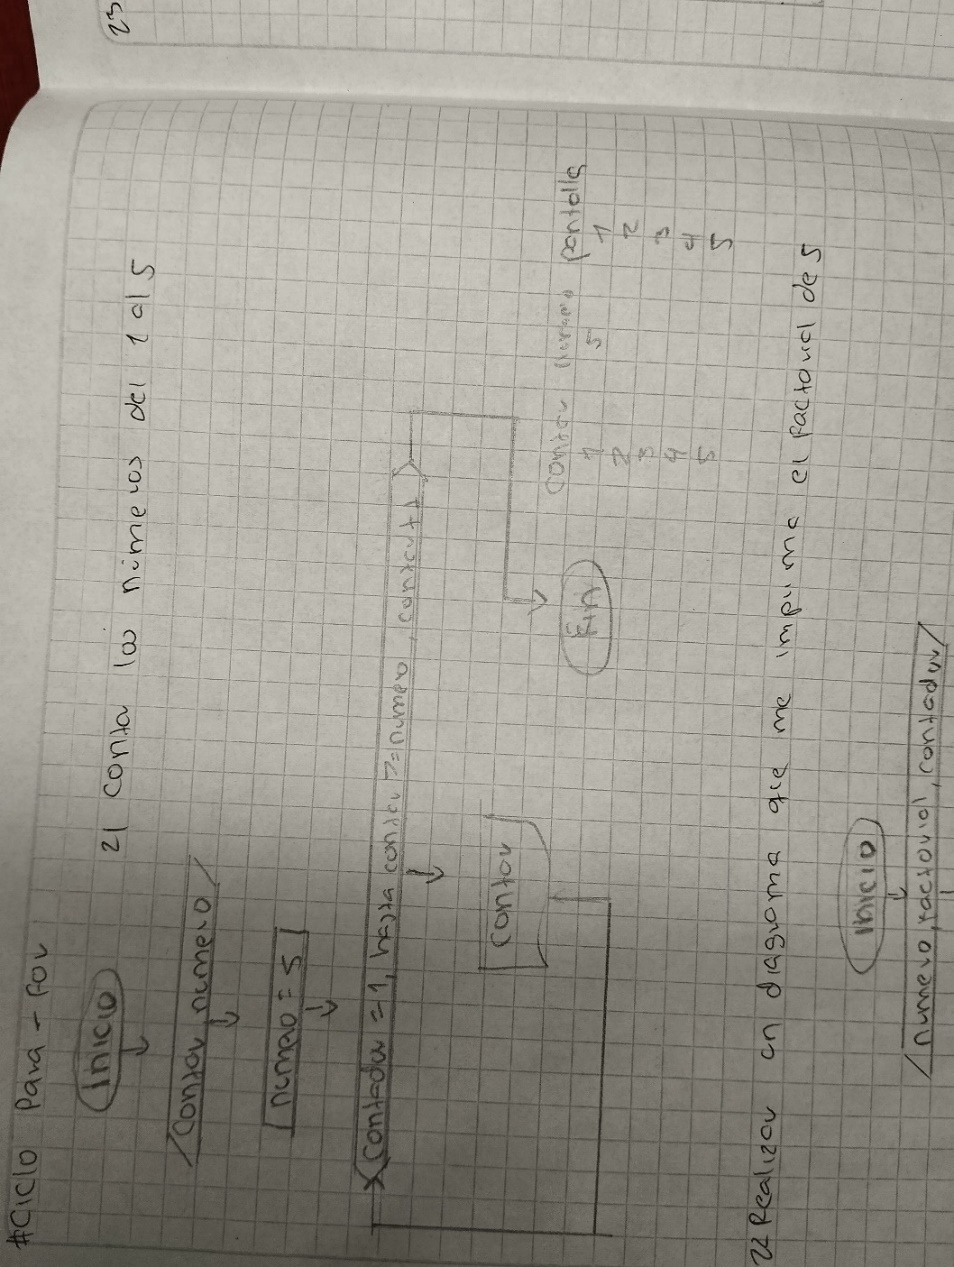 23
#Ciclo Para - for
21 Contar los números del 1 al 5
Inicio
Contar, numero
numero = 5
Contador = 1, hasta contar >= numero, contar+1
Contar
Fin
Contar numero pantalla
1 5 1
2 2
3 3
4 4
5 5
22 Realizar un diagrama que me imprima el factorial de 5
Inicio
numero, factorial, contador